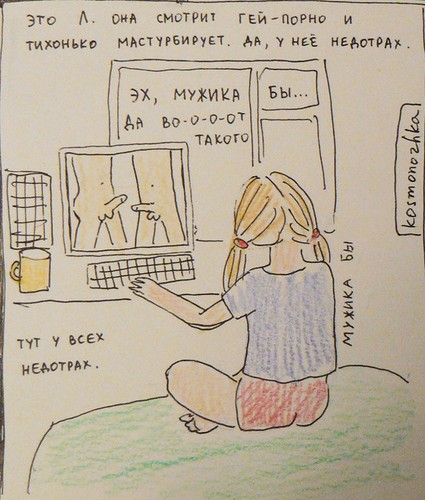 ЭТО Л. ОНА СМОТРИТ ГЕЙ-ПОРНО И
ТИХОНЬКО МАСТУРБИРУЕТ. ДА, У НЕЁ НЕДОТРАХ.
ЭХ, МУЖИКА
БЫ...
ДА ВО-О-О-ОТ
ТАКОГО
kosmonozhka
МУЖИКА БЫ
ТУТ У ВСЕХ
НЕДОТРАХ.